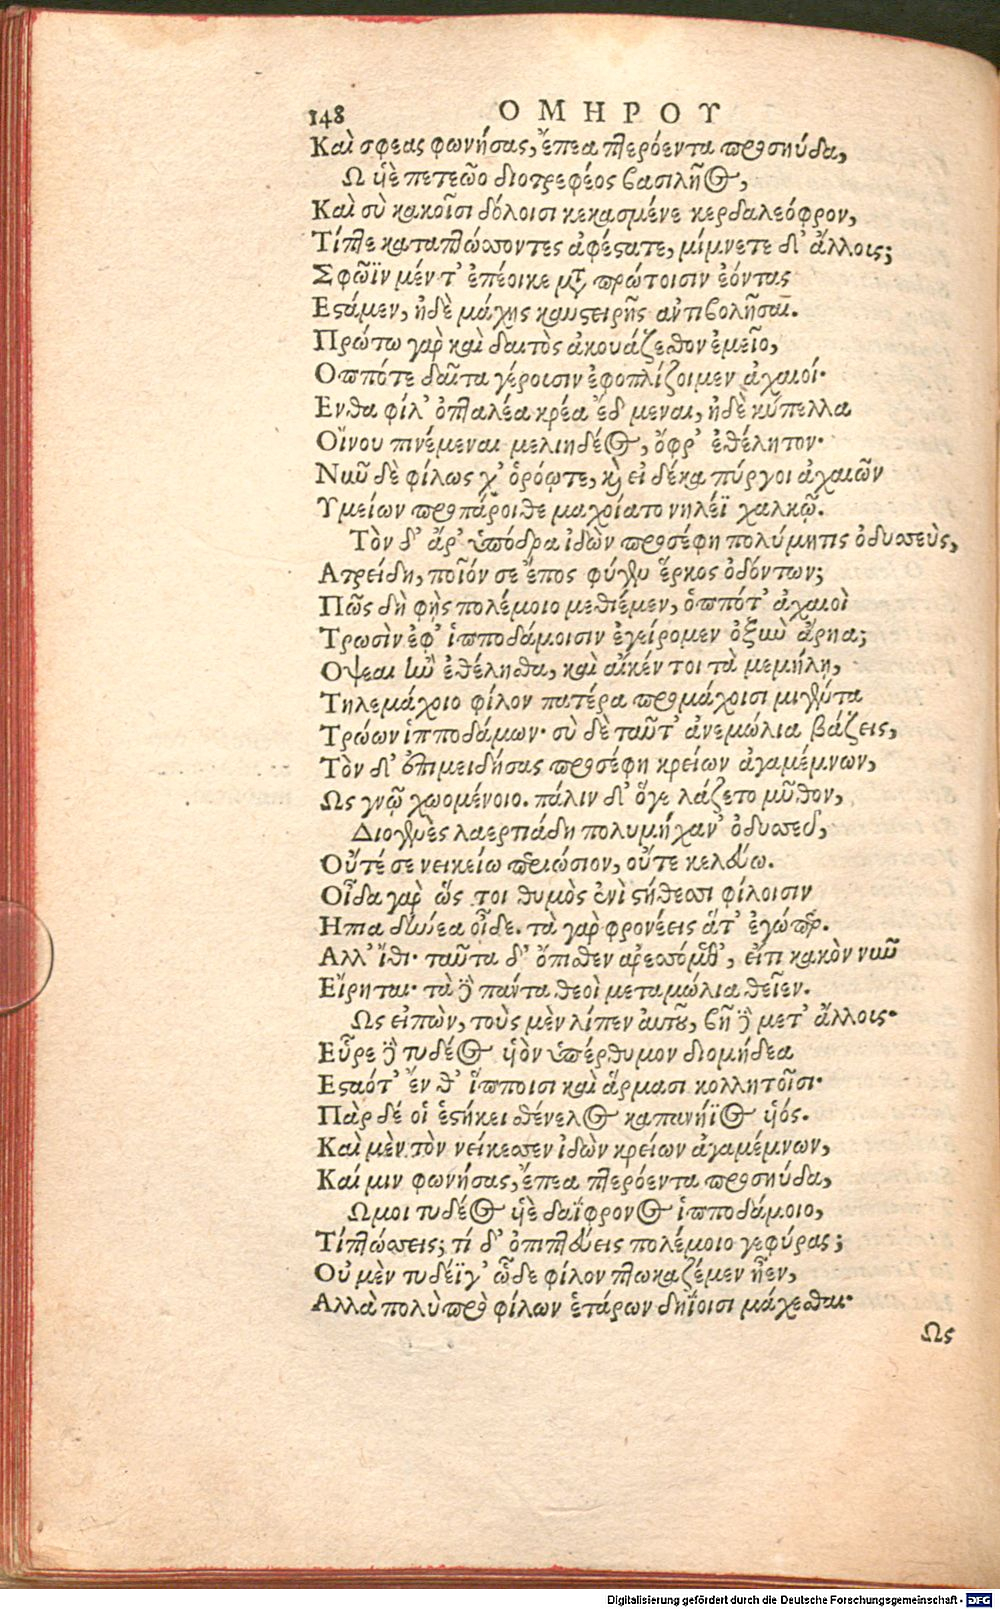 148 ΟΜΗΡΟΥ
Καὶ σφεας φωνήσας, ἔπεα πτερόεντα προσηύδα,
Ω υἱὲ πετεῶο διοτρεφέος βασιλῆος,
Καὶ σὺ κακοῖσι δόλοισι κεκασμένε κερδαλεόφρον,
Τίπτε καταπτώσσοντες ἀφέστατε, μίμνετε δ' ἄλλοις;
Σφῶϊν μέν τ' ἐπέοικε μετὰ πρώτοισιν ἐόντας
Εστάμεν, ἠδὲ μάχης καυστειρῆς ἀντιβολῆσαι.
Πρώτω γὰρ καὶ δαιτὸς ἀκουάζεσθον ἐμεῖο,
Οππότε δαῖτα γέροισιν ἐφοπλίζοιμεν ἀχαιοί·
Ενθα φίλ' ὀπταλέα κρέα ἔδ μεναι, ἠδὲ κύπελλα
Οἴνου πινέμεναι μελιηδέος, ὄφρ' ἐθέλητον·
Νυῦ δὲ φίλως χ' ὁρόῳτε, καὶ εἰ δέκα πύργοι ἀχαιῶν
Υμείων προπάροιθε μαχοίατο νηλέϊ χαλκῷ.
Τὸν δ' ἄρ' ὑπόδρα ἰδὼν προσέφη πολύμητις ὀδυσσεὺς,
Ατρείδη, ποῖόν σε ἔπος φύγεν ἕρκος ὀδόντων;
Πῶς δὴ φῂς πολέμοιο μεθιέμεν, ὁππότ' ἀχαιοὶ
Τρωσὶν ἐφ' ἱπποδάμοισιν ἐγείρομεν ὀξυὺ ἄρηα;
Οψεαι ἢν ἐθέλησθα, καὶ αἴκέν τοι τὰ μεμήλῃ,
Τηλεμάχοιο φίλον πατέρα προμάχοισι μιγέντα
Τρώων ἱπποδάμων· σὺ δὲ ταῦτ' ἀνεμώλια βάζεις,
Τὸν δ' ἐπιμειδήσας προσέφη κρείων ἀγαμέμνων,
Ως γνῷ χωομένοιο. πάλιν δ' ὅγε λάζετο μῦθον,
Διογενὲς λαερτιάδη πολυμήχαν' ὀδυσσεῦ,
Οὔτέ σε νεικείω περιώσιον, οὔτε κελεύω.
Οἶδα γὰρ ὥς τοι θυμὸς ἐνὶ στήθεσσι φίλοισιν
Ηπια δήνεα οἶδε. τὰ γὰρ φρονέεις ἅτ' ἐγώ περ.
Αλλ' ἴθι· ταῦτα δ' ὄπισθεν ἀρεσσόμεθ', εἴτι κακὸν νυῦ
Εἴρηται· τὰ δὲ πάντα θεοὶ μεταμώλια θεῖεν.
Ως εἰπὼν, τοὺς μὲν λίπεν αὐτοῦ, βῆ δὲ μετ' ἄλλοις·
Εὗρε δὲ τυδέος υἱὸν ὑπέρθυμον διομήδεα
Εσταότ' ἔν θ' ἵπποισι καὶ ἅρμασι κολλητοῖσι·
Πὰρ δέ οἱ ἑστήκει σθένελος καπανήϊος υἱός.
Καὶ μὲν τὸν νείκεσσεν ἰδὼν κρείων ἀγαμέμνων,
Καί μιν φωνήσας, ἔπεα πτερόεντα προσηύδα,
Ωμοι τυδέος υἱὲ δαΐφρονος ἱπποδάμοιο,
Τί πτώσσεις; τί δ' ὀπιπτεύεις πολέμοιο γεφύρας;
Οὐ μὲν τυδέϊ γ' ὧδε φίλον πτωκαζέμεν ἦεν,
Αλλὰ πολὺ πρὸ φίλων ἑτάρων δηΐοισι μάχεσθαι·
Ως
Digitalisierung gefördert durch die Deutsche Forschungsgemeinschaft - DFG